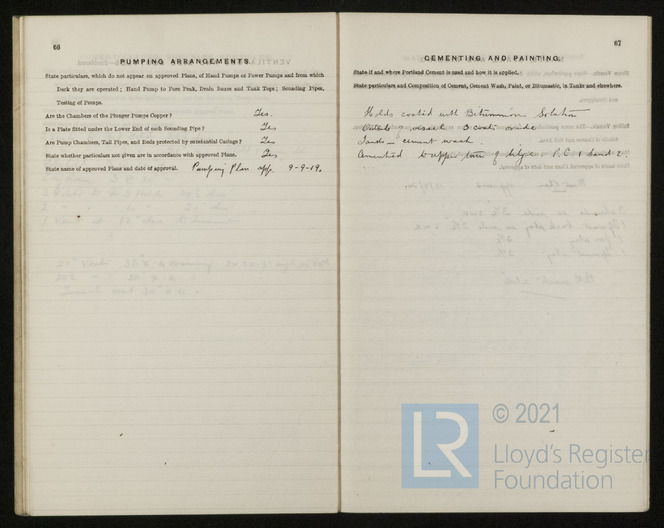 66
PUMPING ARRANGEMENTS.
State particulars, which do not appear on approved Plans, of Hand Pumps or Power Pumps and from which
Deck they are operated; Hand Pump to Fore Peak, Drain Boxes and Tank Tops; Sounding Pipes,
Testing of Pumps.
Are the Chambers of the Plunger Pumps Copper? Yes.
Is a Plate fitted under the Lower End of each Sounding Pipe? Yes
Are Pump Chambers, Tail Pipes, and Rods protected by substantial Casings? Yes
State whether particulars not given are in accordance with approved Plans. Yes
State name of approved Plans and date of approval. Pumping Plan app. 9-9-19.
67
CEMENTING AND PAINTING.
State if and where Portland Cement is used and how it is applied.
State particulars and Composition of Cement, Cement Wash, Paint, or Bitumastic, in Tanks and elsewhere.
Holds coated with Solution
Outside of vessel 3 coats oxide
Tanks - cement wash.
Cemented to upper turn of bilge P.C. 1 Sand 2.
© 2021
LR
Lloyd's Register
Foundation